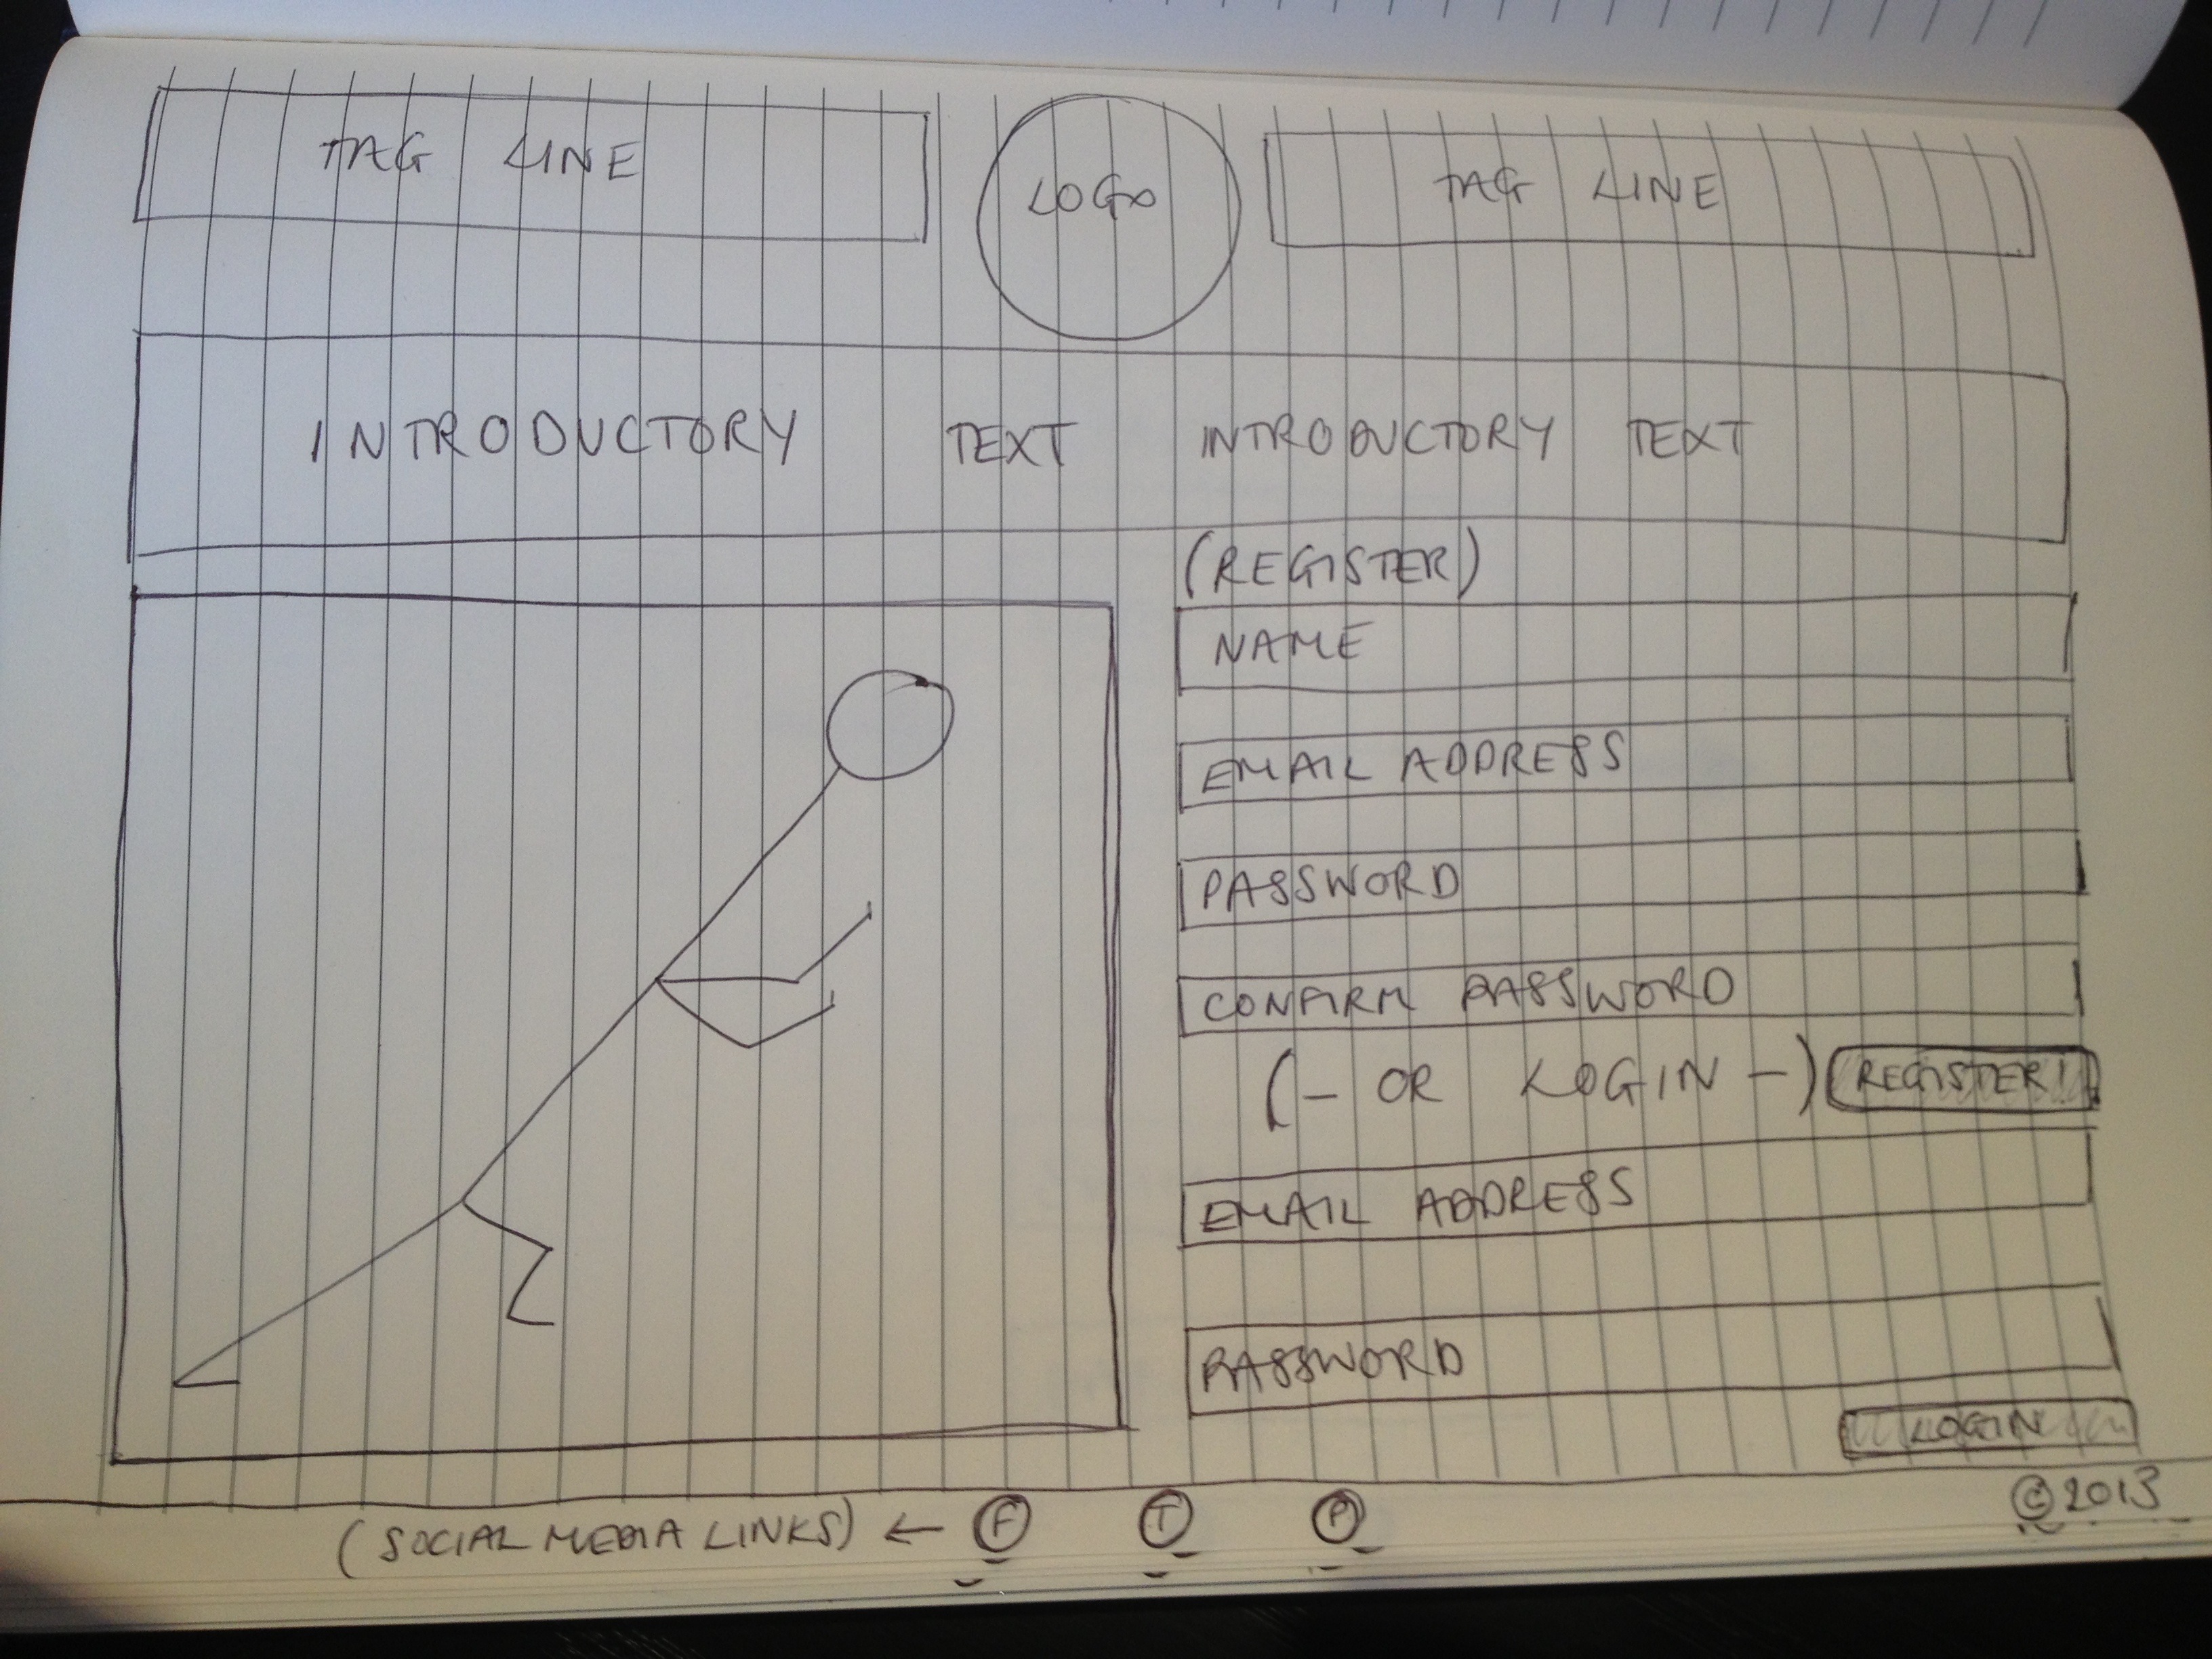 TAG LINE
LOGO
TAG LINE
INTRODUCTORY TEXT INTRODUCTORY TEXT
(REGISTER)
NAME
EMAIL ADDRESS
PASSWORD
CONFIRM PASSWORD
(- OR LOGIN -) REGISTER!
EMAIL ADDRESS
PASSWORD
LOGIN
(SOCIAL MEDIA LINKS) ← F T P
© 2013